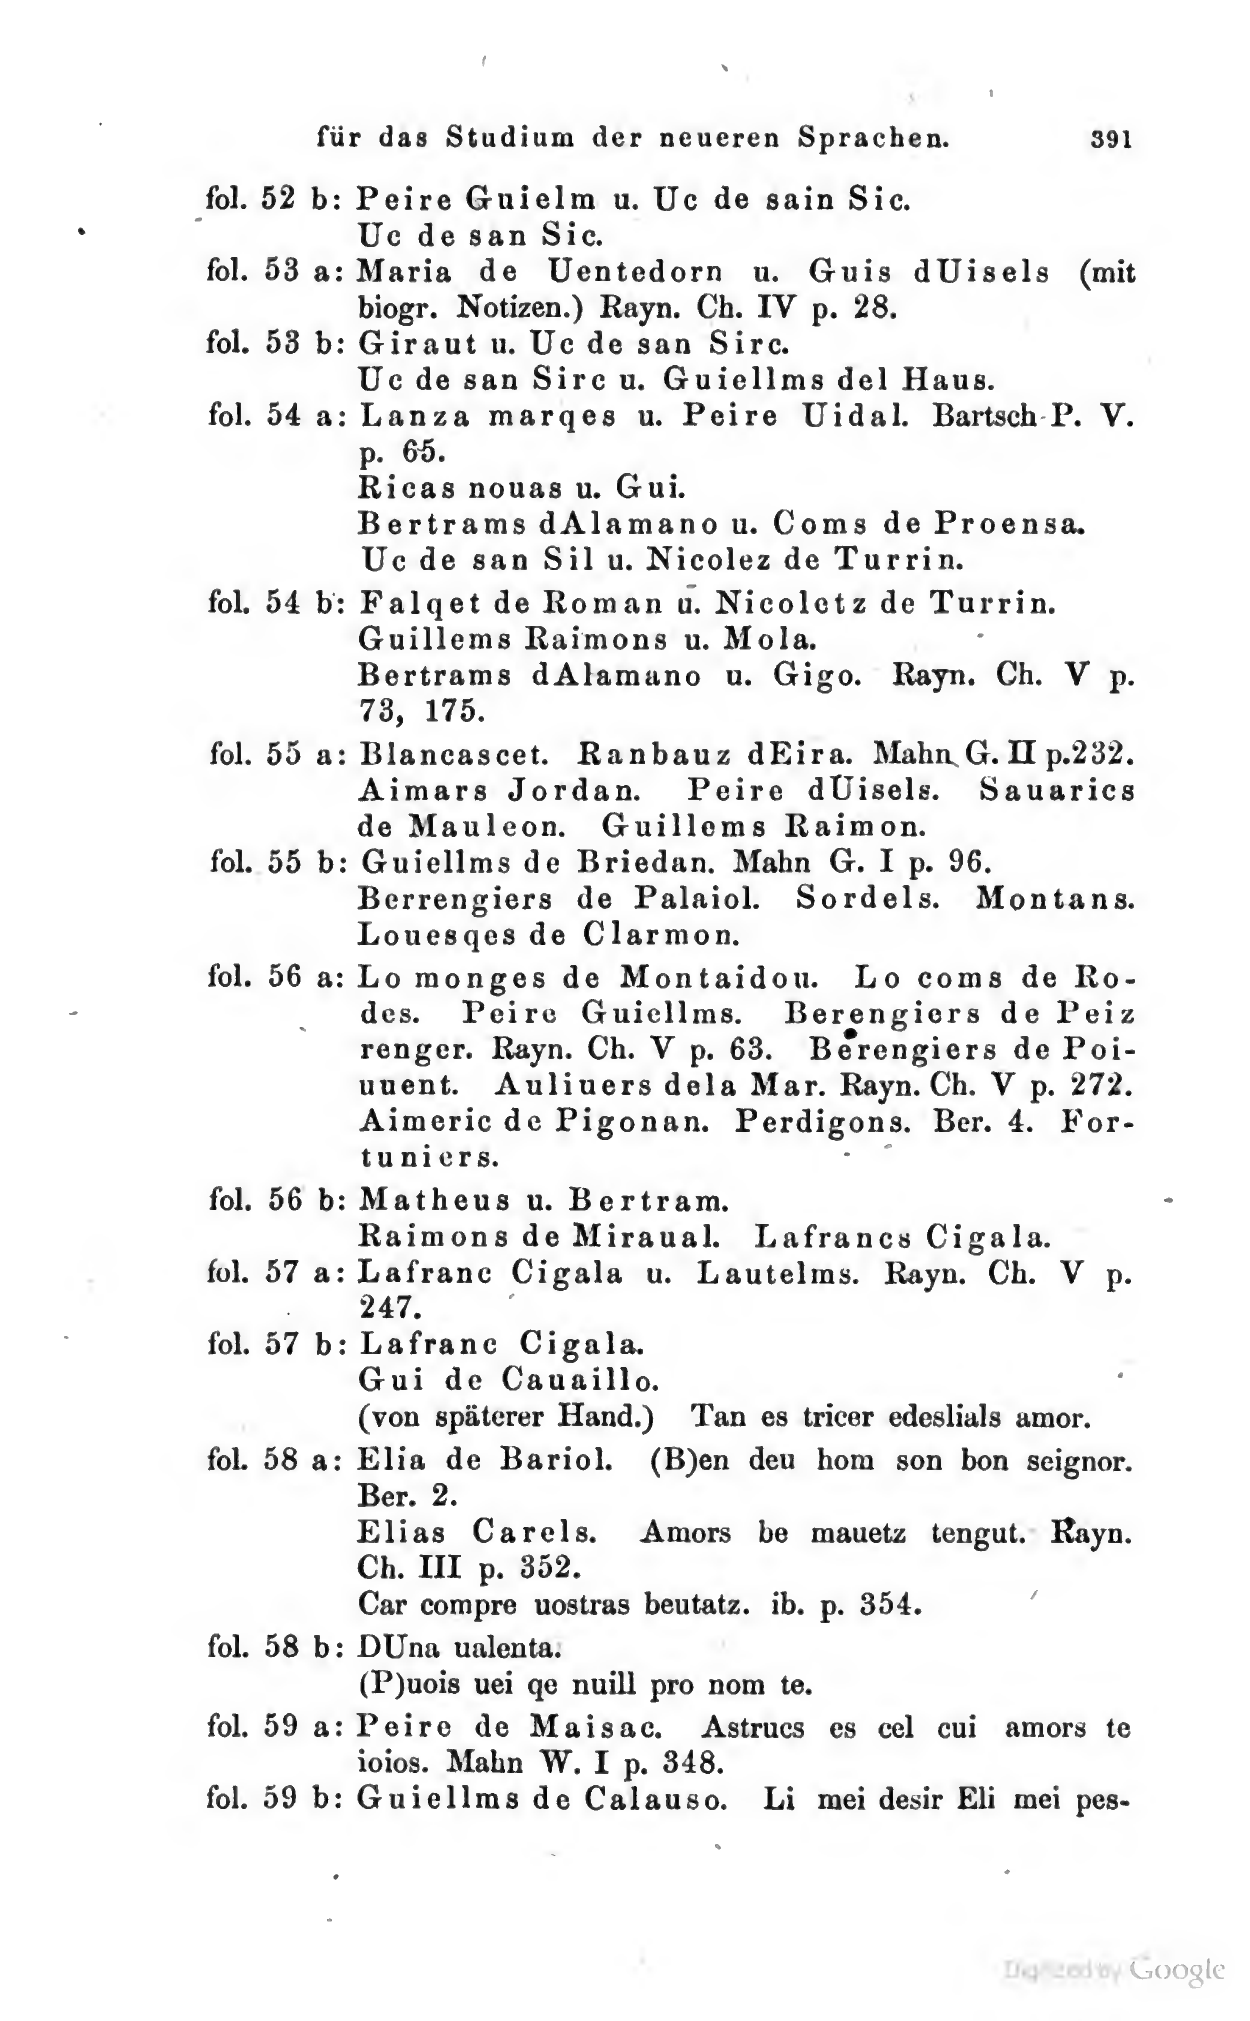 für das Studium der neueren Sprachen. 391
fol. 52 b: Peire Guielm u. Uc de sain Sic.
Uc de san Sic.
fol. 53 a: Maria de Uentedorn u. Guis dUisels (mit
biogr. Notizen.) Rayn. Ch. IV p. 28.
fol. 53 b: Giraut u. Uc de san Sirc.
Uc de san Sirc u. Guiellms del Haus.
fol. 54 a: Lanza marqes u. Peire Uidal. Bartsch P. V.
p. 65.
Ricas nouas u. Gui.
Bertrams dAlamano u. Coms de Proensa.
Uc de san Sil u. Nicolez de Turrin.
fol. 54 b: Falqet de Roman u. Nicoletz de Turrin.
Guillems Raimons u. Mola.
Bertrams dAlamano u. Gigo. Rayn. Ch. V p.
73, 175.
fol. 55 a: Blancascet. Ranbauz dEira. Mahn G. II p. 232.
Aimars Jordan. Peire dUisels. Sauarics
de Mauleon. Guillems Raimon.
fol. 55 b: Guiellms de Briedan. Mahn G. I p. 96.
Berrengiers de Palaiol. Sordels. Montans.
Louesqes de Clarmon.
fol. 56 a: Lo monges de Montaidou. Lo coms de Ro-
des. Peire Guiellms. Berengiers de Peiz
renger. Rayn. Ch. V p. 63. Berengiers de Poi-
uuent. Auliuers dela Mar. Rayn. Ch. V p. 272.
Aimeric de Pigonan. Perdigons. Ber. 4. For-
tuniers.
fol. 56 b: Matheus u. Bertram.
Raimons de Miraual. Lafrancs Cigala.
fol. 57 a: Lafranc Cigala u. Lautelms. Rayn. Ch. V p.
247.
fol. 57 b: Lafranc Cigala.
Gui de Cauaillo.
(von späterer Hand.) Tan es tricer edeslials amor.
fol. 58 a: Elia de Bariol. (B)en deu hom son bon seignor.
Ber. 2.
Elias Carels. Amors be mauetz tengut. Rayn.
Ch. III p. 352.
Car compre uostras beutatz. ib. p. 354.
fol. 58 b: DUna ualenta.
(P)uois uei qe nuill pro nom te.
fol. 59 a: Peire de Maisac. Astrucs es cel cui amors te
ioios. Mahn W. I p. 348.
fol. 59 b: Guiellms de Calauso. Li mei desir Eli mei pes-
Digitized by Google